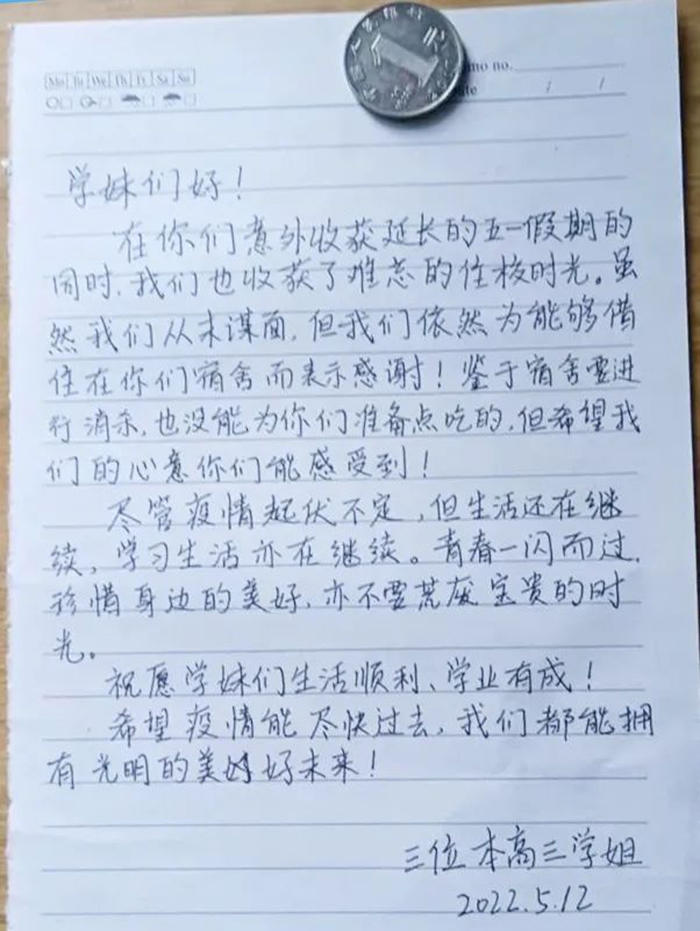 Mo Tu We Th Fr Sa Su
mo no.
ate / /
学妹们好！
在你们意外收获延长的五一假期的
同时,我们也收获了难忘的住校时光。虽
然我们从未谋面,但我们依然为能够借
住在你们宿舍而表示感谢！鉴于宿舍要进
行消杀,也没能为你们准备点吃的,但希望我
们的心意你们能感受到！
尽管疫情起伏不定,但生活还在继
续,学习生活亦在继续。青春一闪而过,
珍惜身边的美好,亦不要荒废宝贵的时
光。
祝愿学妹们生活顺利、学业有成！
希望疫情能尽快过去,我们都能拥
有光明的美好未来！
三位本高三学姐
2022.5.12